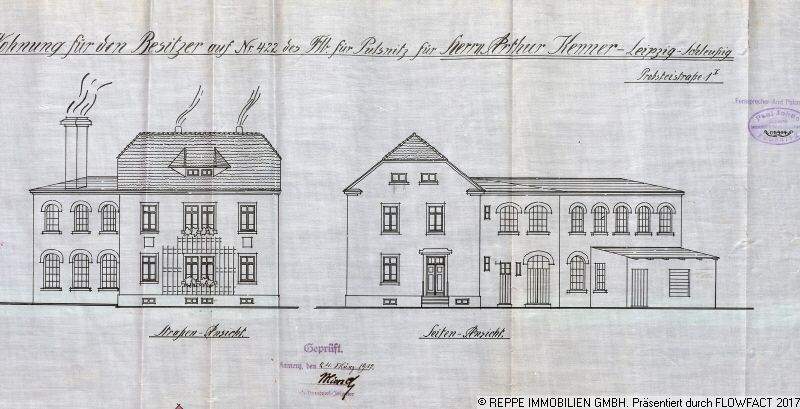 Wohnung für den Besitzer auf Nr 422 des Flb. für Pulsnitz für Herrn Arthur Kenner – Leipzig-Schleußig
Probsteistraße 1 I
Straßen-Ansicht.
Seiten-Ansicht.
Geprüft.
Kamenz, den 24. März 1917.
© REPPE IMMOBILIEN GMBH. Präsentiert durch FLOWFACT 2017